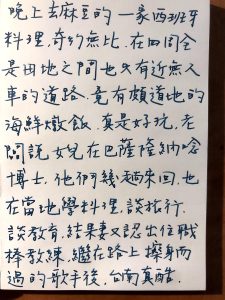 晚上去麻豆的一家西班牙
料理,奇幻無比,在四周全
是田地之間也只有近無人
車的道路,竟有頗道地的
海鮮燉飯,真是好玩,老
闆說女兒在巴薩隆納唸
博士,他們幾趟來回,也
在當地學料理,談旅行,
談教育,結果妻又認出位職
棒教練,繼在路上擦身而
過的歌手後,台南真酷.